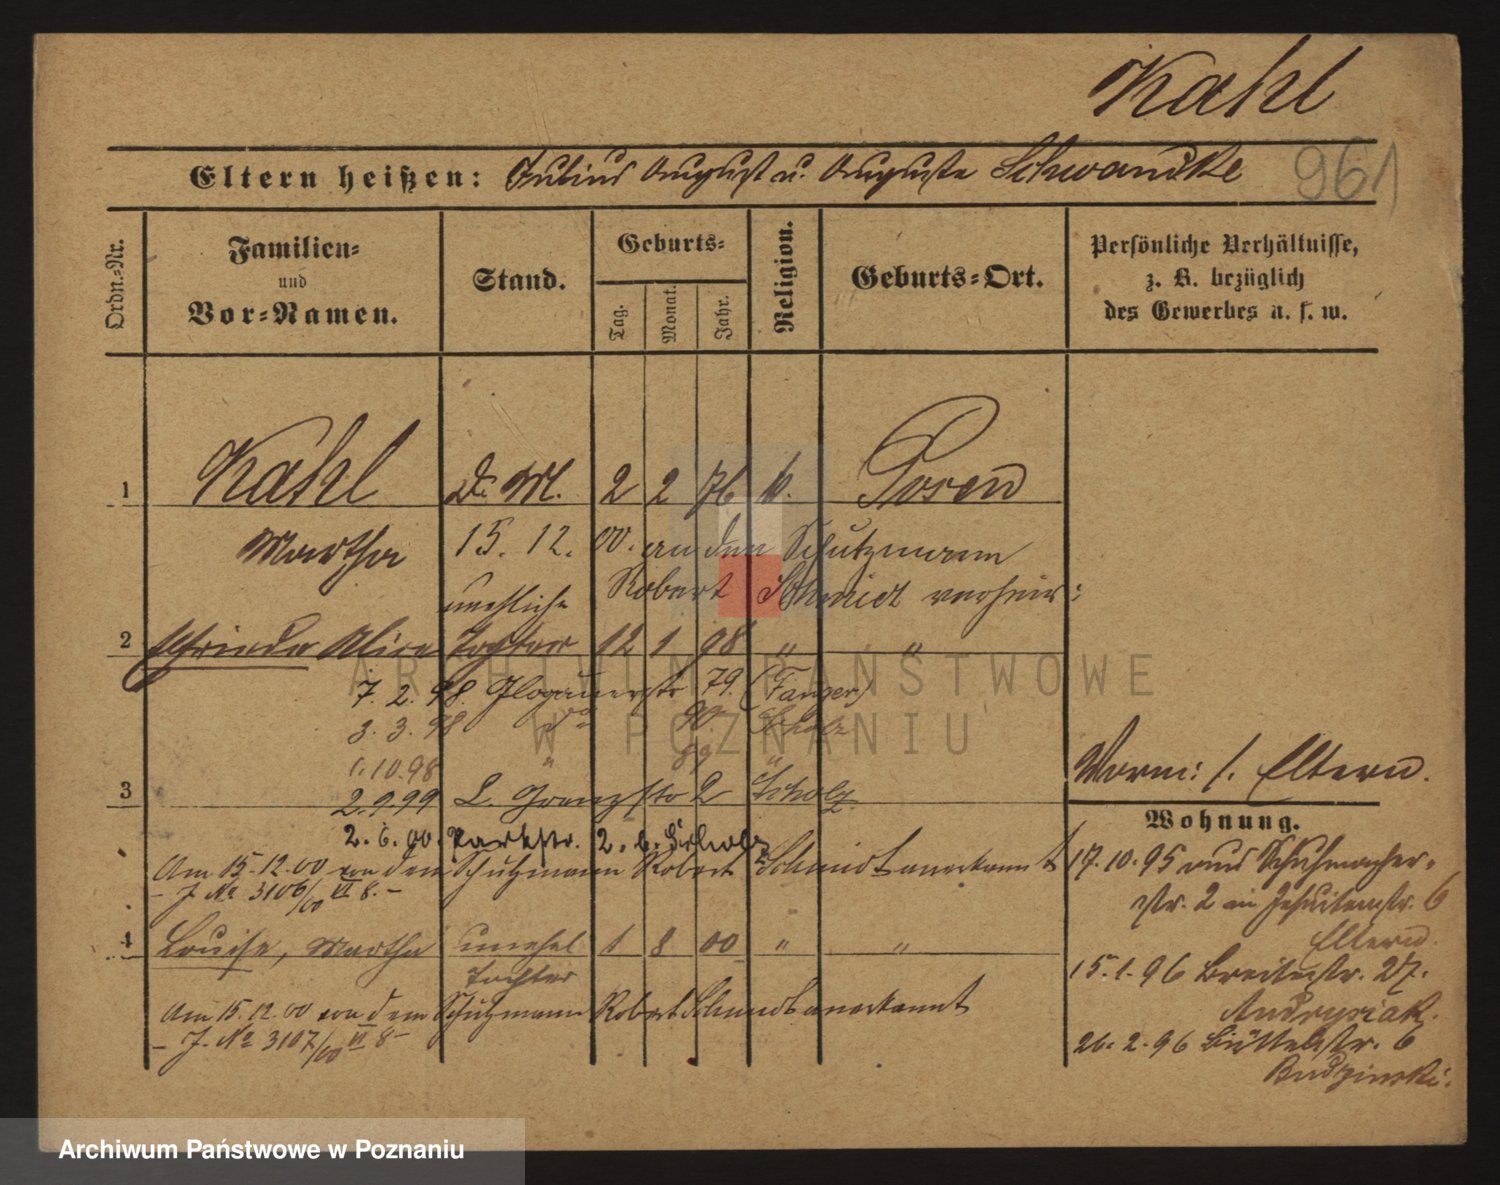 Kahl
Eltern heißen: Julius August u. Auguste Schwandke 961
Ordn.-Nr.
Familien-
und
Vor-Namen.
Stand.
Geburts-
Tag.
Monat.
Jahr.
Religion.
Geburts-Ort.
Persönliche Verhältnisse,
z. B. bezüglich
des Gewerbes u. s. w.
1 Kahl D. M. 2 2 76 k. Posen
Martha 15. 12. 00. an den Schutzmann
Robert Schmidt verheir:
unehliche
2 Elfriede Alice Tochter 12 1 98 " "
7. 2. 98. Glogauerstr 79. (Fanger)
3. 3. 98 do 90. Scholz
1.10.98 " 89 "
3 2.9.99 L. Grenzstr 2 Scholz
2. 6. 00. Parkstr. 2. b. Scholz
Am 15.12.00 von dem Schutzmann Robert Schmidt anerkannt
- J. No 3106/00 VI 8. -
4 Louise, Martha unehel 1 8 00 " "
Tochter
Am 15.12.00 von dem Schutzmann Robert Schmidt anerkannt
- J. No 3107/00 VI 8 -
Worm: s. Eltern.
Wohnung.
17.10.95 aus Schuhmacher-
str. 2 in Jesuitenstr. 6
Eltern.
15.1.96 Breitestr. 27.
Andrysiak.
26.2.96 Büttelstr. 6
Budzinski.
ARCHIWUM PAŃSTWOWE
W POZNANIU
Archiwum Państwowe w Poznaniu